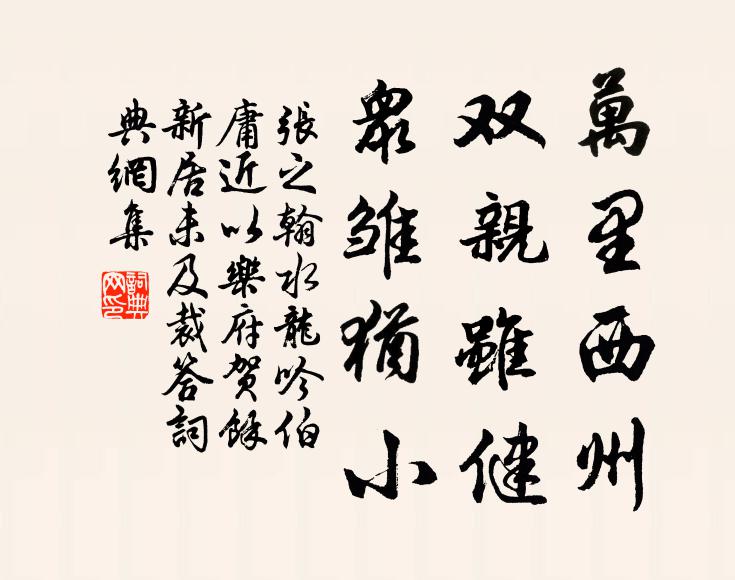 萬里西州
双親雖健
衆雏猶小
張之翰水龍吟伯
庸近以樂府賀餘
新居未及裁答詞
典網集
詞典网印